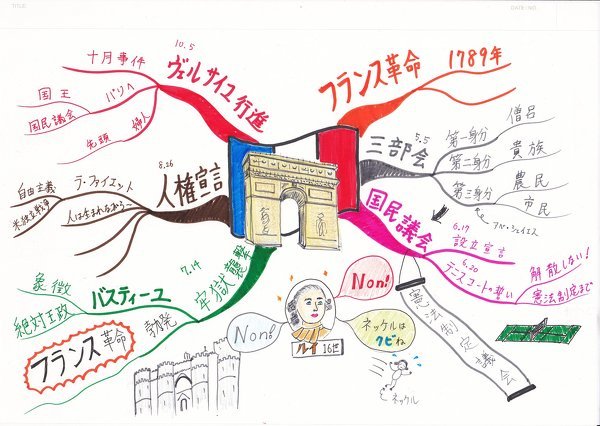 TITLE
DATE・NO.
フランス革命
1789年
三部会
5.5
第一身分
僧呂
第二身分
貴族
第三身分
農民
市民
アベ・シェイエス
国民議会
6.17
設立宣言
6.20
テニスコートの誓い
解散しない!
憲法制定まで
憲法制定議会
7.14
牢獄襲撃
バスティーユ
象徴
絶対王政
勃発
フランス革命
8.26
人権宣言
ラ・ファイエット
自由主義
米独立戦争
人は生まれながら〜
10.5
ヴェルサイユ行進
十月事件
パリへ
国王
国民議会
婦人
先頭
Non!
Non!
ネッケルは
クビね
ルイ16世
ネッケル